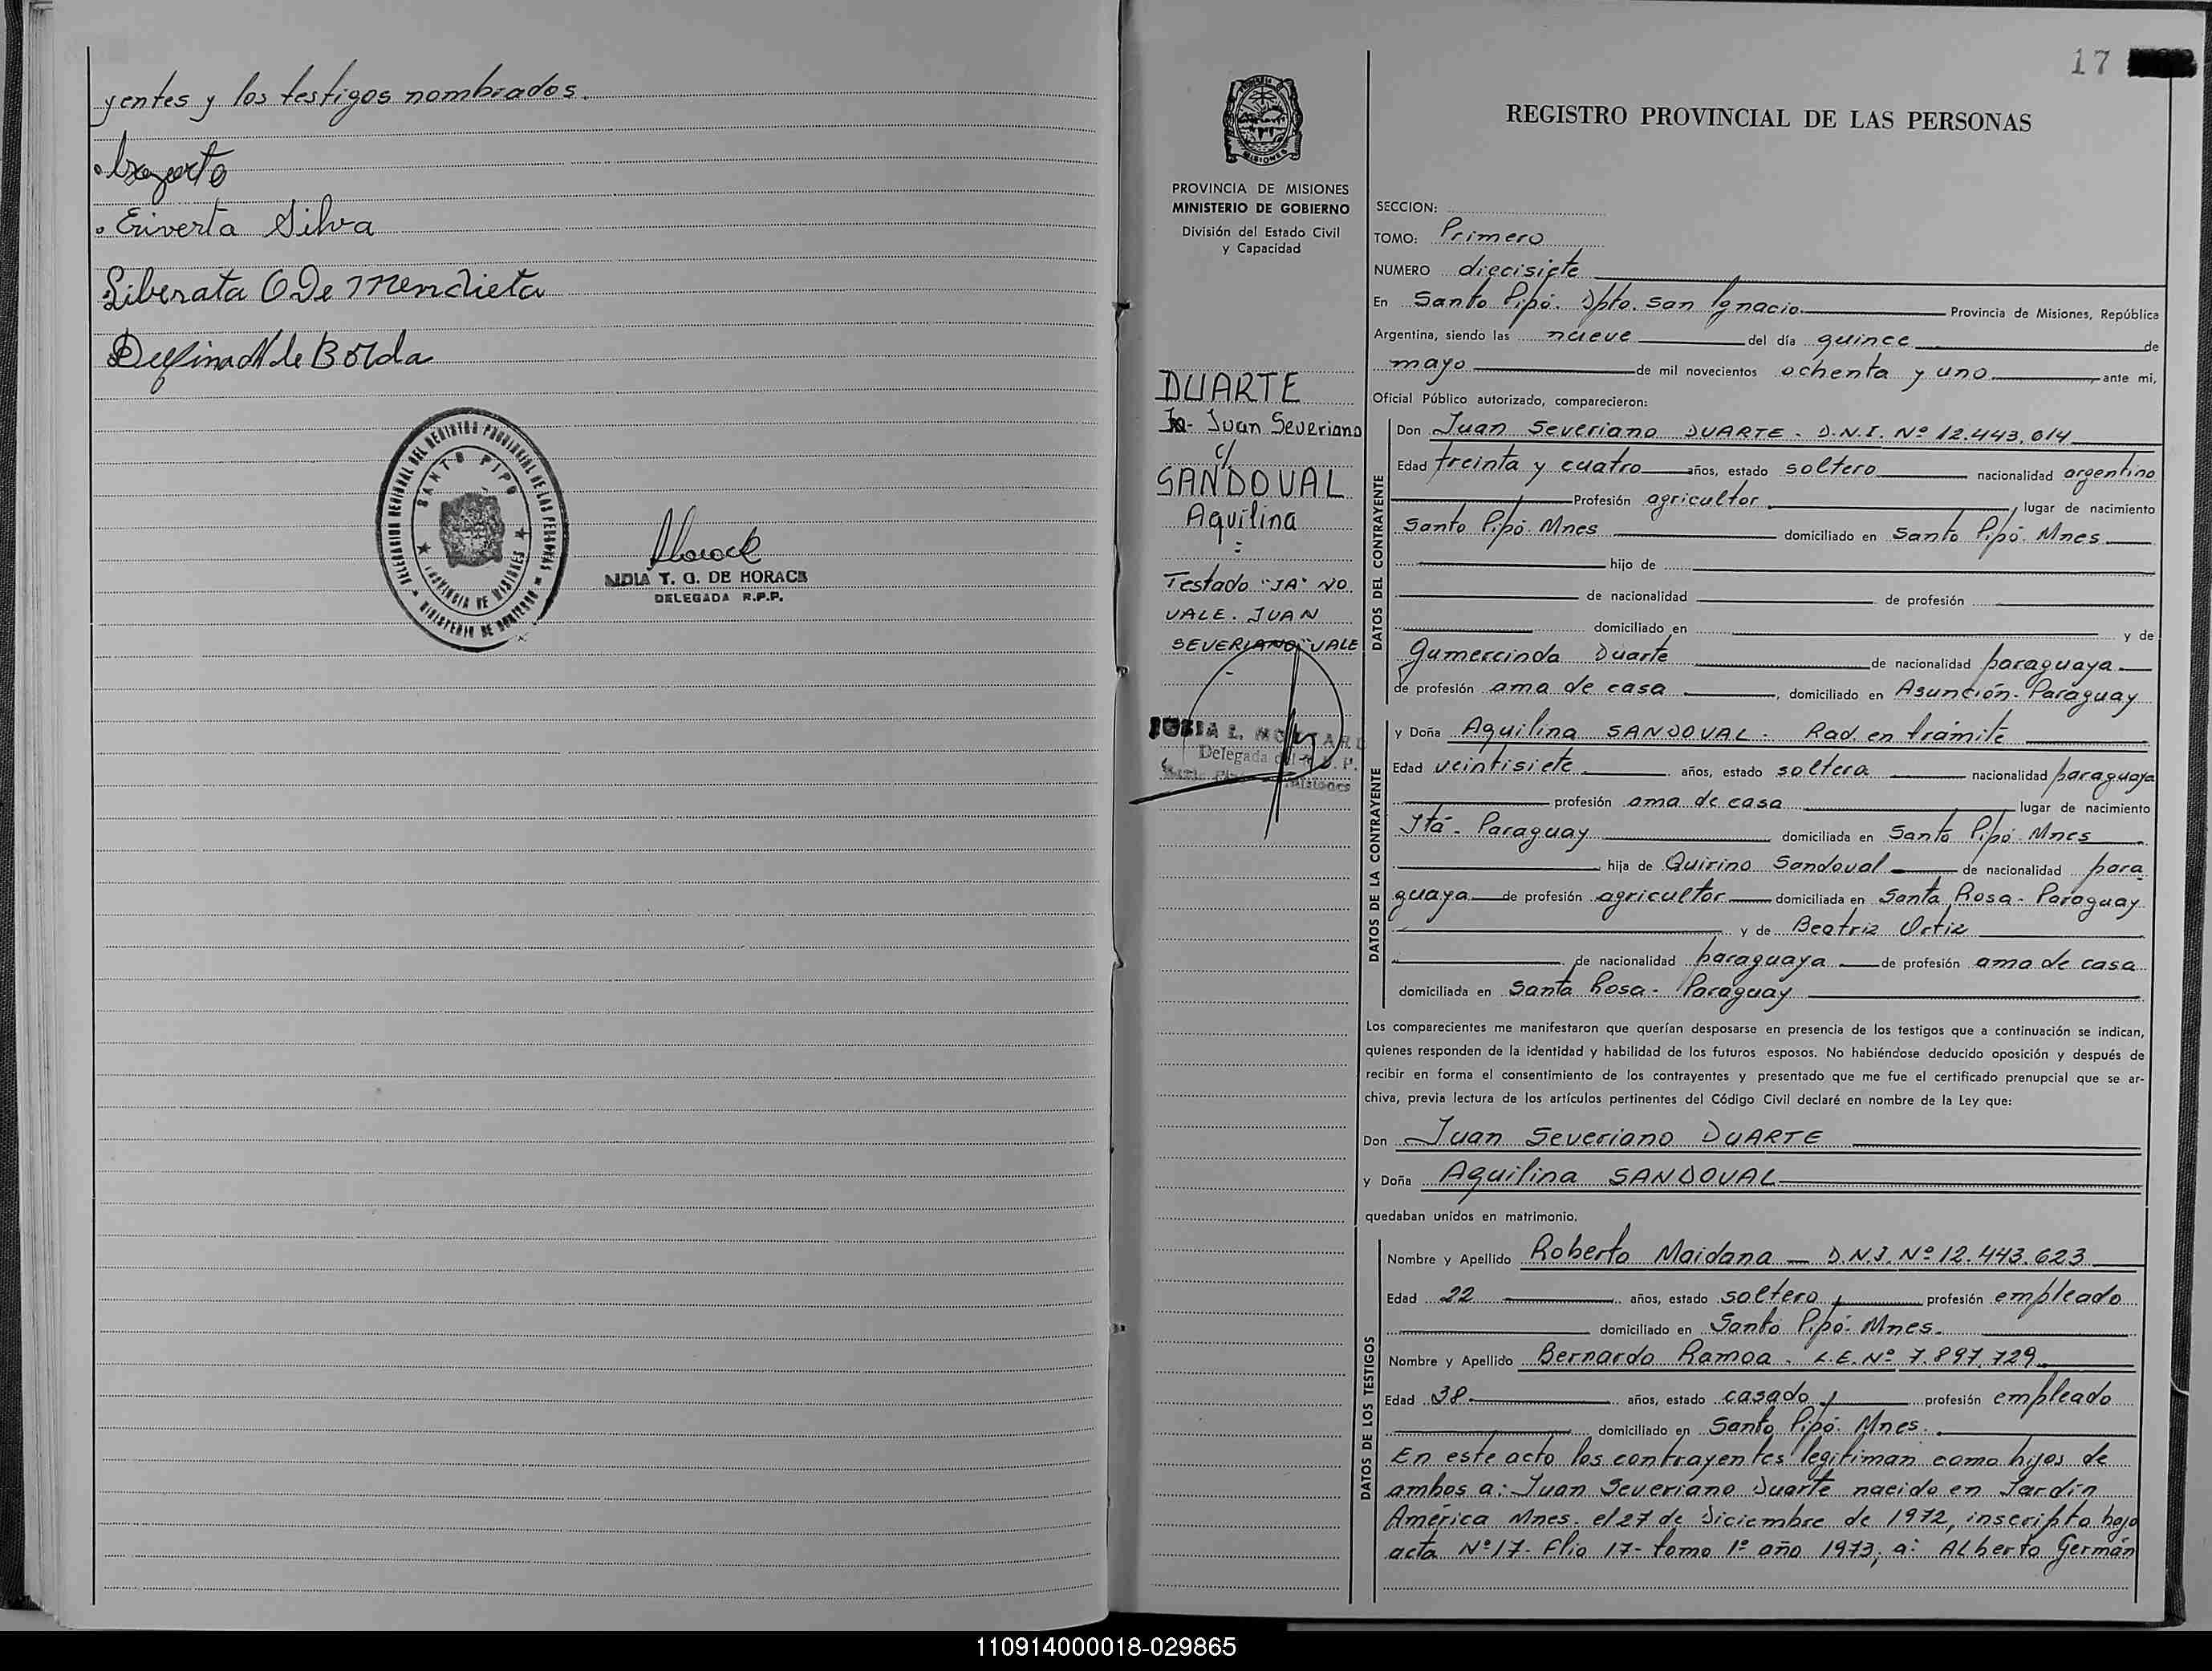 yentes y los testigos nombrados.
Eriverta Silva
Liberata O De Mendieta
Delfina M de Borda
DELEGACION REGIONAL DEL REGISTRO PROVINCIAL DE LAS PERSONAS
SANTO PIPO
PROVINCIA DE MISIONES
MINISTERIO DE GOBIERNO
NIDIA T. G. DE HORACK
DELEGADA R.P.P.
17
MISIONES
PROVINCIA DE MISIONES
MINISTERIO DE GOBIERNO
División del Estado Civil
y Capacidad
DUARTE
Juan Severiano
c/
SANDOVAL
Aquilina
=
Testado "JA" NO
VALE. JUAN
SEVERIANO "VALE
Delegada del R. P. P.
Misiones
REGISTRO PROVINCIAL DE LAS PERSONAS
SECCION:
TOMO: Primero
NUMERO diecisiete
En Santo Pipó. Dpto. San Ignacio. Provincia de Misiones, República
Argentina, siendo las nueve del día quince de
mayo de mil novecientos ochenta y uno ante mi,
Oficial Público autorizado, comparecieron:
DATOS DEL CONTRAYENTE
Don Juan Severiano DUARTE - D.N.I. Nº 12.443.614
Edad treinta y cuatro años, estado soltero nacionalidad argentino
Profesión agricultor lugar de nacimiento
Santo Pipó. Mnes domiciliado en Santo Pipó. Mnes.
hijo de
de nacionalidad de profesión
domiciliado en y de
Gumercinda Duarte de nacionalidad paraguaya
de profesión ama de casa , domiciliado en Asunción. Paraguay
DATOS DE LA CONTRAYENTE
y Doña Aquilina SANDOVAL - Rad. en trámite
Edad veintisiete años, estado soltera nacionalidad paraguaya
profesión ama de casa lugar de nacimiento
Itá - Paraguay domiciliada en Santo Pipó Mnes
hija de Quirino Sandoval de nacionalidad para
guaya de profesión agricultor domiciliada en Santa Rosa - Paraguay
y de Beatriz Ortiz
de nacionalidad paraguaya de profesión ama de casa
domiciliada en Santa Rosa - Paraguay
Los comparecientes me manifestaron que querían desposarse en presencia de los testigos que a continuación se indican,
quienes responden de la identidad y habilidad de los futuros esposos. No habiéndose deducido oposición y después de
recibir en forma el consentimiento de los contrayentes y presentado que me fue el certificado prenupcial que se ar-
chiva, previa lectura de los artículos pertinentes del Código Civil declaré en nombre de la Ley que:
Don Juan Severiano DUARTE
y Doña Aquilina SANDOVAL
quedaban unidos en matrimonio.
DATOS DE LOS TESTIGOS
Nombre y Apellido Roberto Maidana - D.N.I. Nº 12.443.623
Edad 22 años, estado soltero profesión empleado
domiciliado en Santo Pipó- Mnes.
Nombre y Apellido Bernardo Ramoa. L.E. Nº 7.897.729
Edad 38 años, estado casado profesión empleado
domiciliado en Santo Pipó. Mnes.
En este acto los contrayentes legitiman como hijos de
ambos a: Juan Severiano Duarte nacido en Jardín
América Mnes. el 27 de Diciembre de 1972, inscripto bajo
acta Nº 17- Flio 17- tomo 1º año 1973; a: ALberto Germán
110914000018-029865